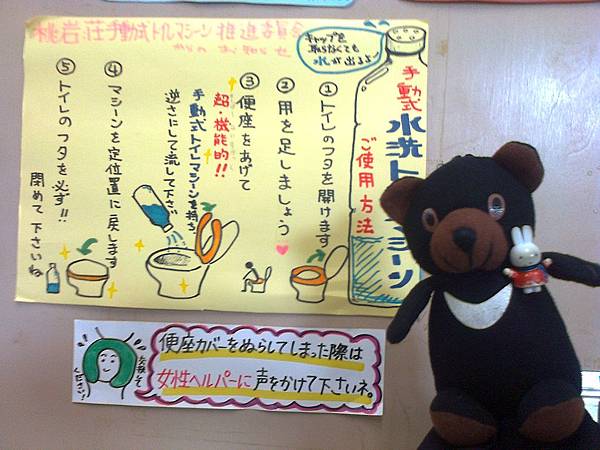 桃岩荘手動式トイレマシーン推進委員会
からのお知らせ
キャップを
取らなくても
水が出るよ!
手動式
水洗トイレマシーン
ご使用方法
①トイレのフタを開けます
②用を足しましょう
③便座をあげて
超・機能的!!
手動式トイレマシーンを持ち、
逆さにして流して下さい
④マシーンを定位置に戻します
⑤トイレのフタを必ず!!
閉めて下さいね
便座カバーをぬらしてしまった際は
女性ヘルパーに声をかけて下さいネ。
ください!